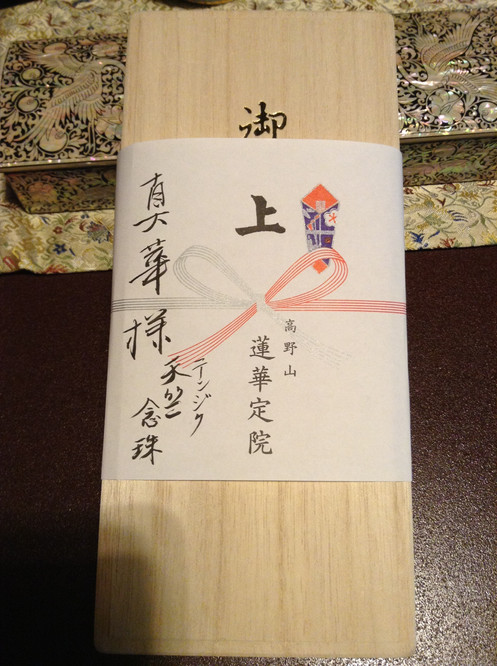 御
上
高野山
蓮華定院
真華様
テンジク
天竺
念珠